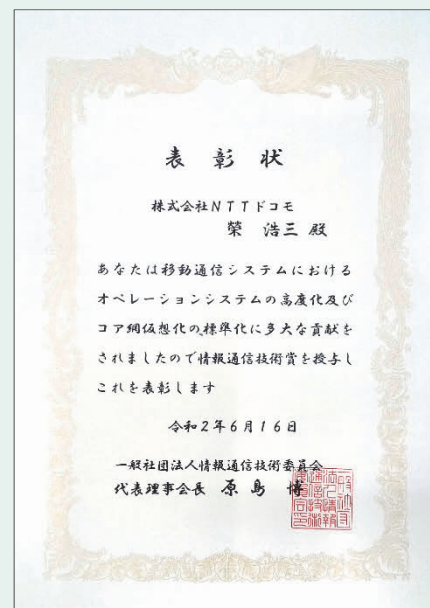 表彰状
株式会社NTTドコモ
榮 浩三 殿
あなたは移動通信システムにおける
オペレーションシステムの高度化及び
コア網仮想化の標準化に多大な貢献を
されましたので情報通信技術賞を授与し
これを表彰します
令和2年6月16日
一般社団法人情報通信技術委員会
代表理事会長 原島 博